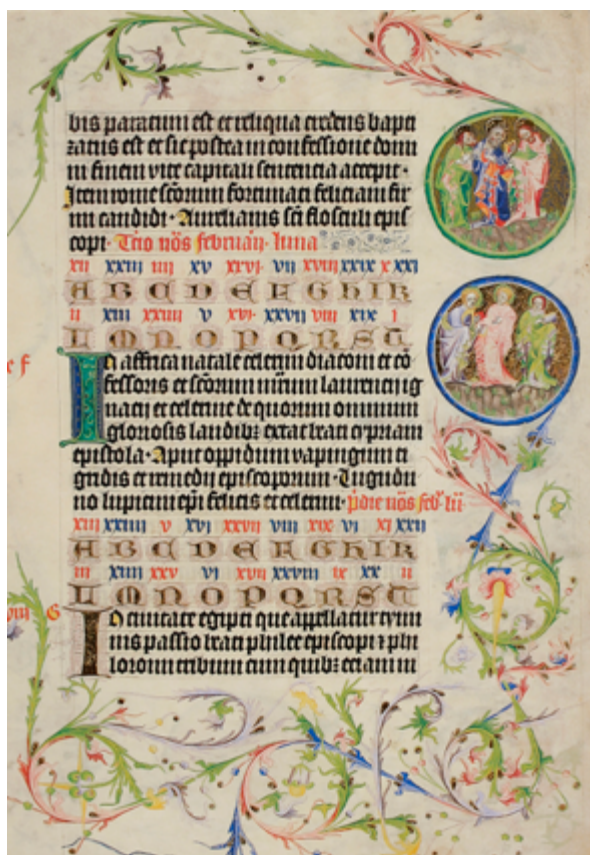 bis paratum est et reliqua credens bapti
zatus est et sic postea in confessione domi
ni finem vite capitali sentencia accepit ·
Item rome scõrum fortunati feliciani fir
mi candidi · Aurelianis sci flosculi epis
copi · Tcio nõs februarii · luna
xii xxiii iiii xv xxvi· vii xviii xxix x xxi
A B C D E F G H I K
ii xiii xxiiii v xvi· xxvii viii xix i
L M N O P Q R S T
f
In affrica natale celerini diaconi et cõ
fessoris et scõrum mrum laurencii ig
nacii et celerine de quorum omnium
gloriosis laudibz extat beati cypriani
epistola · Apud oppidum vapingum ti
gridis et remedii episcoporum · Lugudu
no lupicini epi felicis et celerini · pdie nõs feb lu
xiii xxiiii v xvi xxvii viii xix vi xi xxii
A B C D E F G H I K
iii xiiii xxv vi xvii xxviii ix xx ii
L M N O P Q R S T
G
In civitate egipti que appellatur
passio beati philee episcopi z phi
loromi tribuni cum quibz etiam in